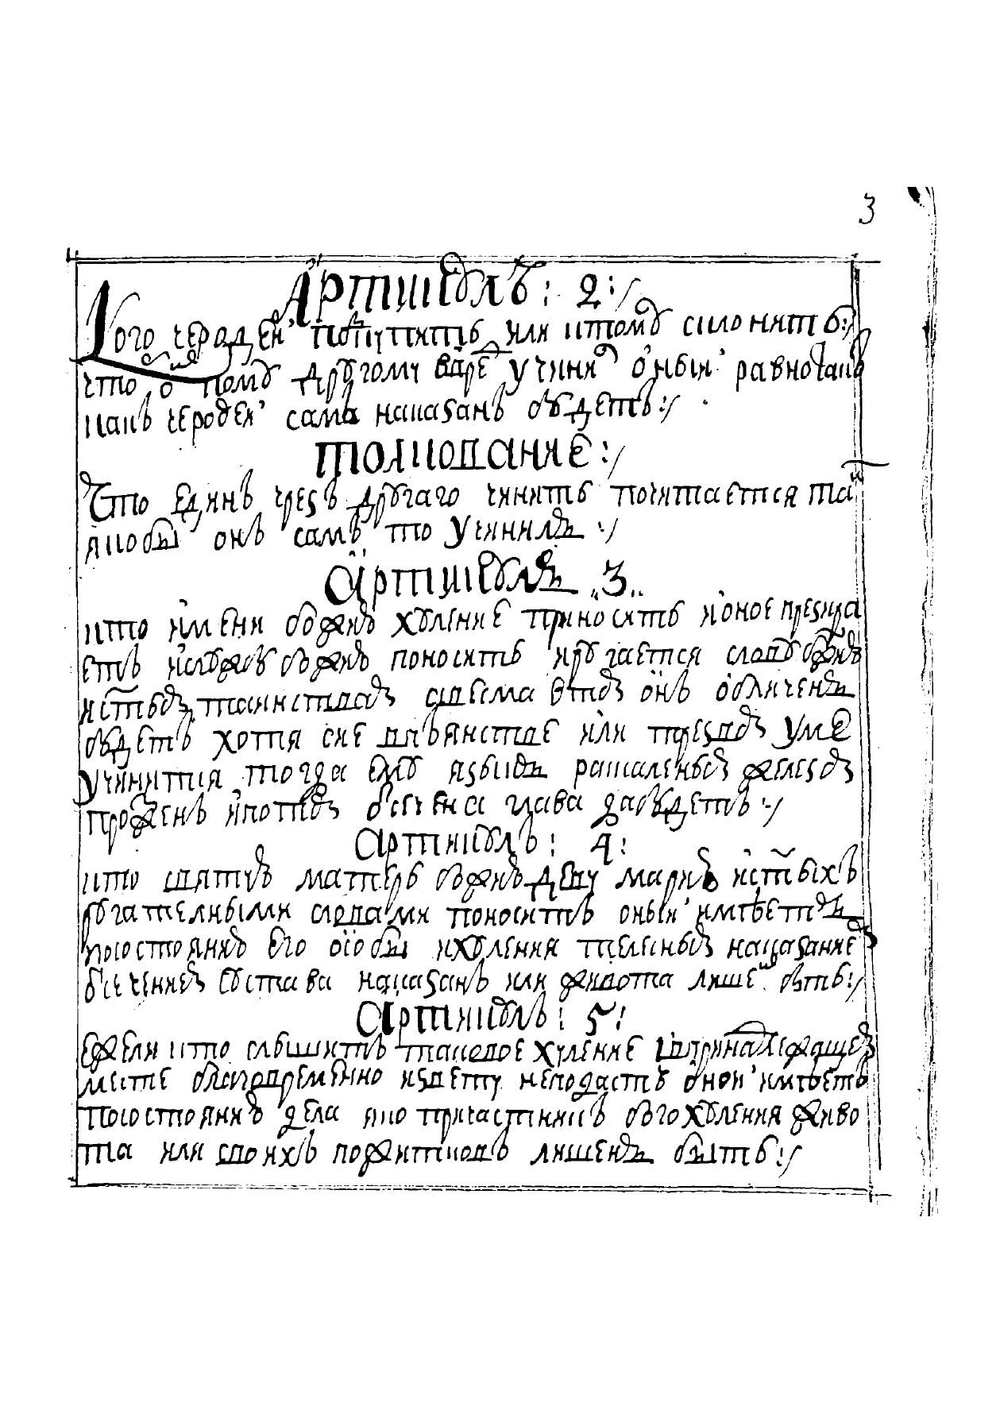 3
Артикулъ: 2:/
Кого чародей подкупитъ или ктому склонитъ:/
что онъ кому другому вреди учинитъ оный равно такъ
какъ чародей самъ наказанъ будетъ:/
толкованиe:/
Что единъ чрезъ другаго чинитъ почитается так
якобы онъ самъ то учинилъ:/
Артикулъ „3„
кто имени божию хуление приноситъ и оное презира
етъ и службу божию поноситъ и ругается слову божию
и стымъ таинствамъ а весма втомъ онъ обличенъ
будетъ хотя сие въ пьянстве или трезвомъ уме
учинится тогда ему языкъ раскаленымъ железомъ
прожженъ и потомъ отсечена глава да будетъ:/
Артикулъ: 4:
кто святую матерь божию деву марию и стыхъ
ругателными словами поноситъ оный имѣетъ
посостоянию его особы и хуления телесным наказание
отсечения сустава наказанъ или живота лишен быть:/
Артикулъ: 5:
Ежели кто слышитъ таковое хуление и въ принадлежащем
месте благовременно извету неподастъ оной имѣетъ
посостоянию дела яко причастникъ богохуления живо
та или своихъ пожитковъ лишенъ быть:/